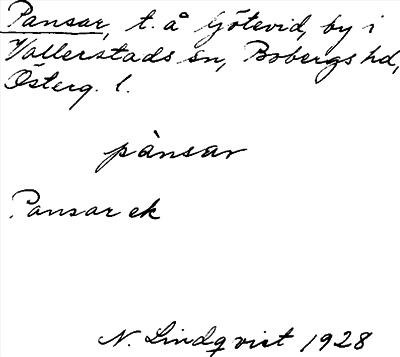 Pansar, t. å Götevid, by i
Vallerstads sn, Bobergs hd,
Österg. l.
pànsar
Pansar ek
N. Lindqvist 1928